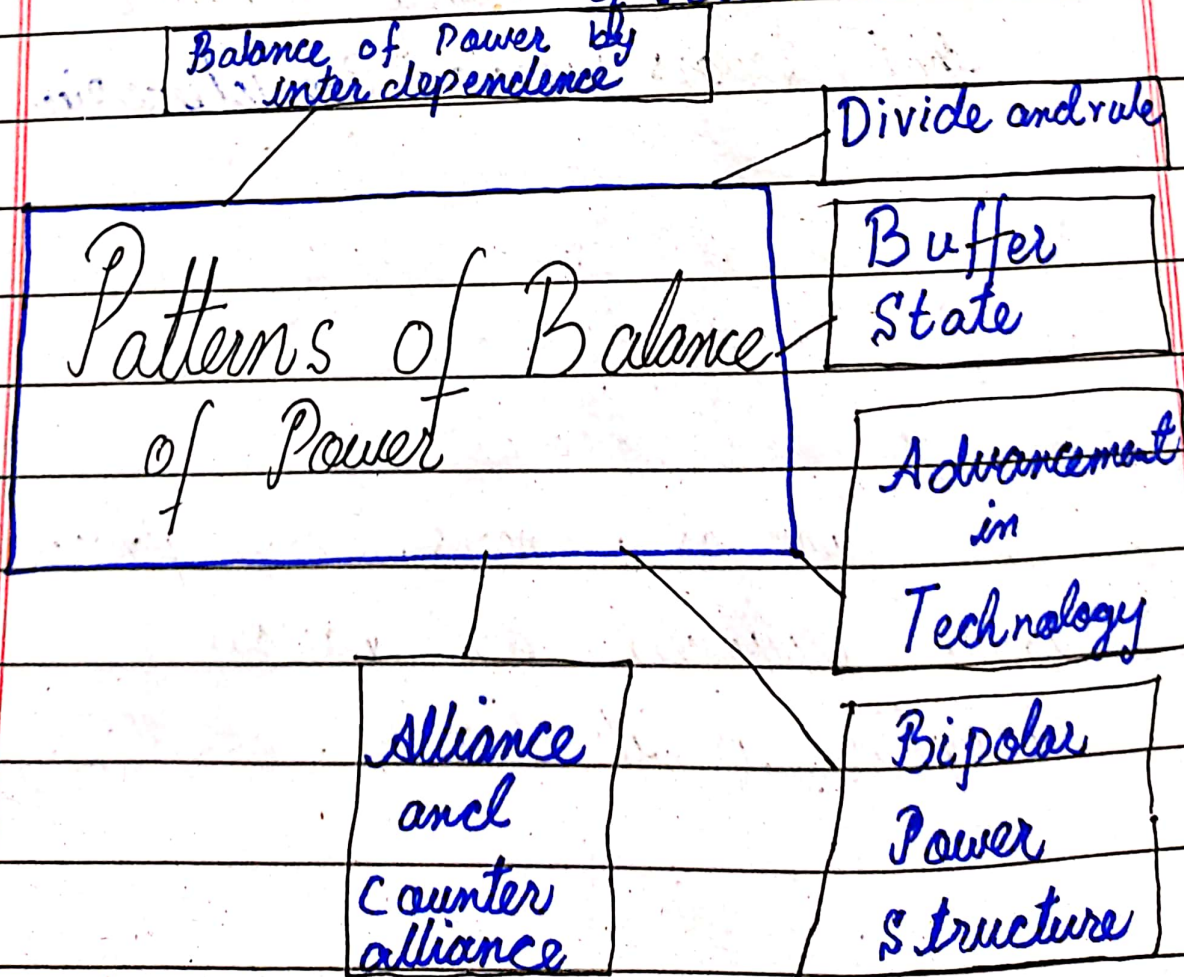 Balance of Power by
inter dependence
Divide and rule
Patterns of Balance
of Power
Buffer
State
Advancement
in
Technology
Alliance
and
Counter
alliance
Bipolar
Power
Structure